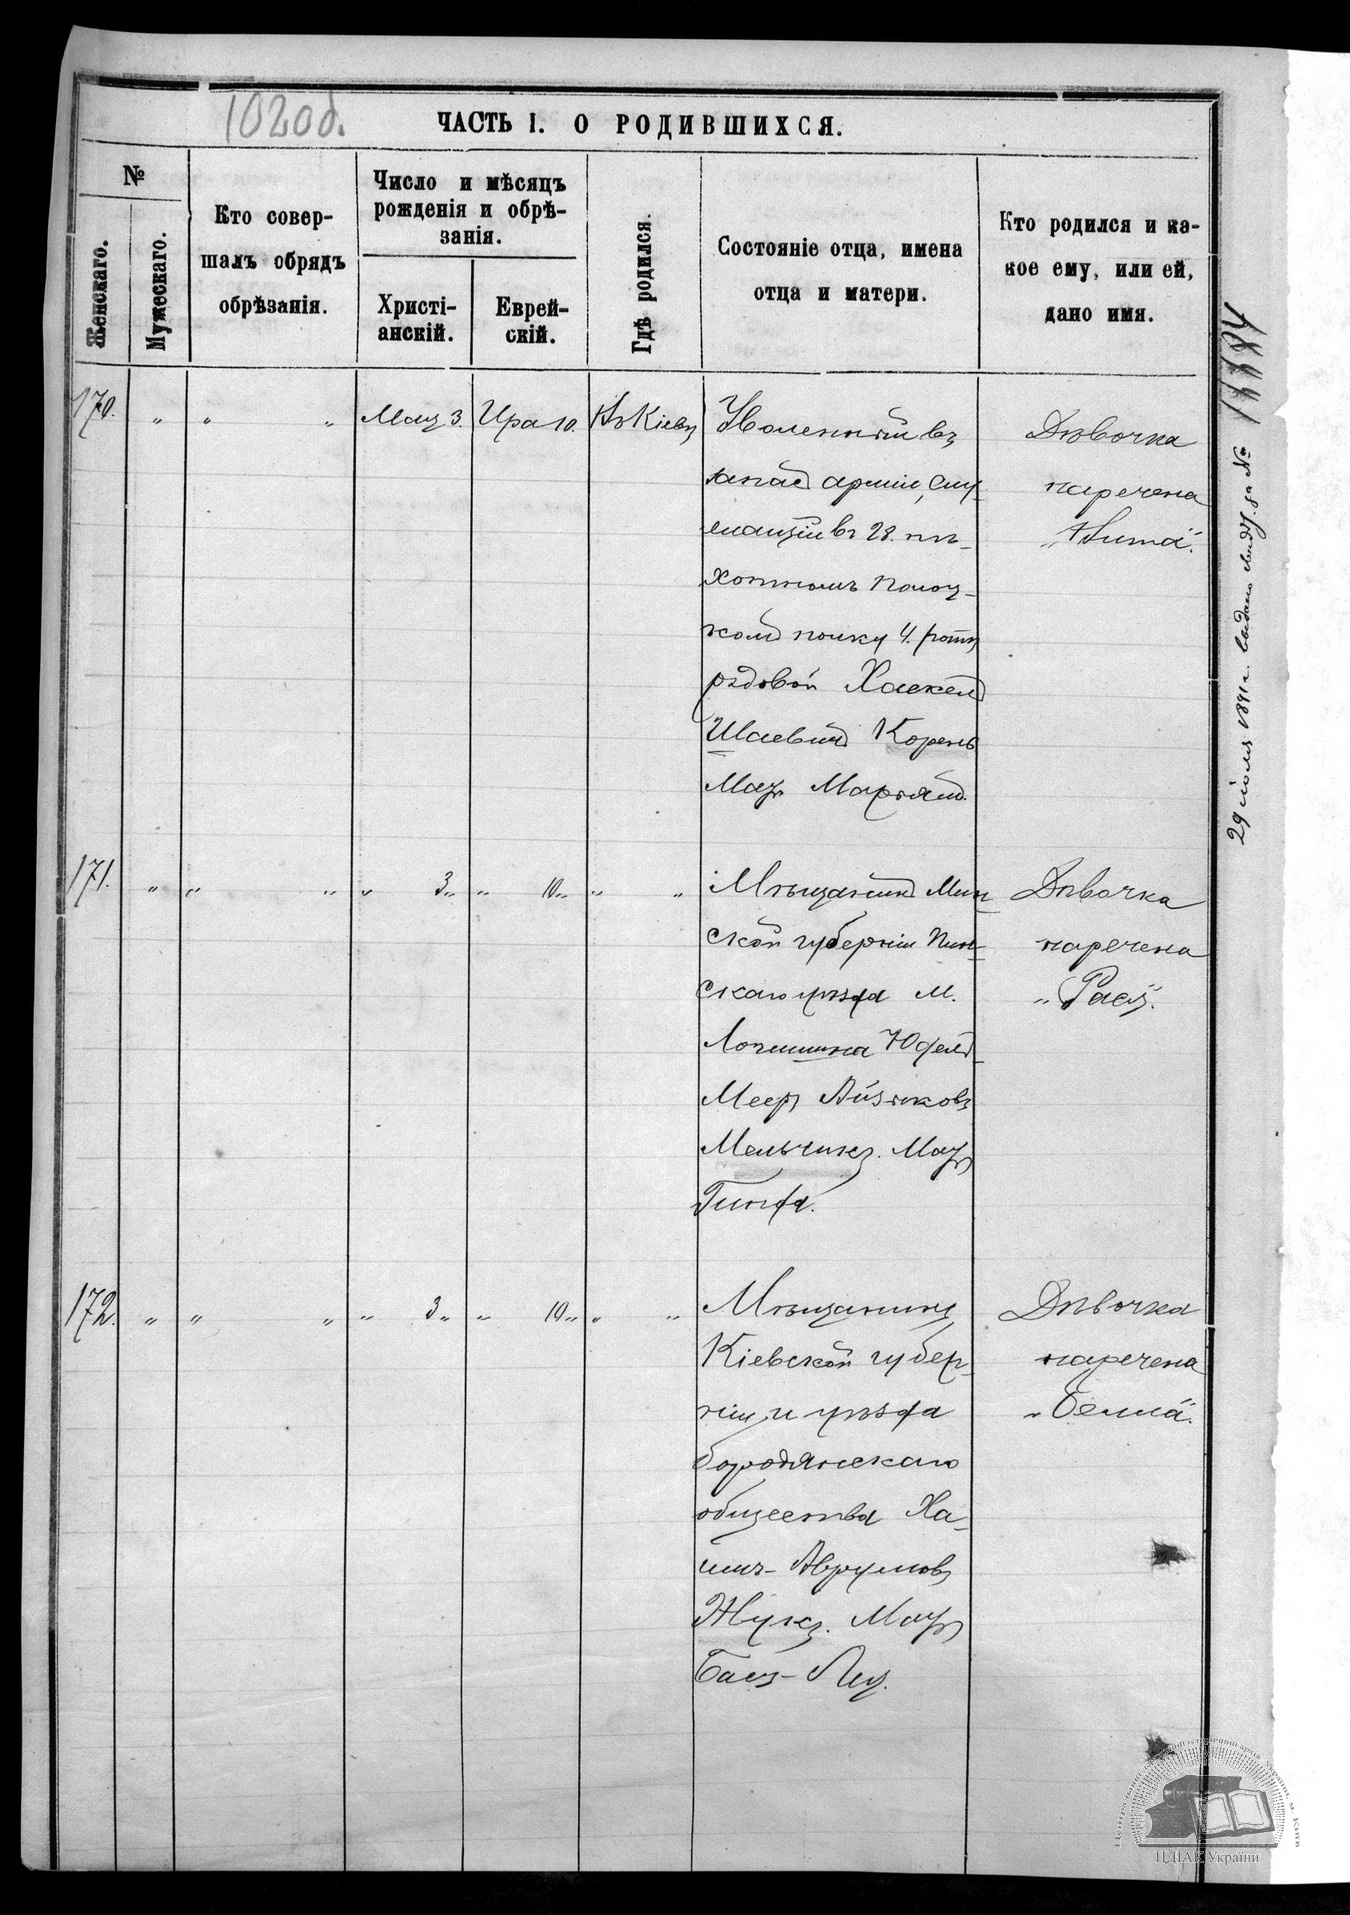 102об.
ЧАСТЬ I. О РОДИВШИХСЯ.
№
Женскаго.
Мужескаго.
Кто совер-
шалъ обрядъ
обрѣзанія.
Число и мѣсяцъ
рожденія и обрѣ-
занія.
Христі-
анскій.
Еврей-
скій.
Гдѣ родился.
Состояніе отца, имена
отца и матери.
Кто родился и ка-
кое ему, или ей,
дано имя.
170. " " " Мая 3. Ира 10. Въ Кіевѣ
Уволенный въ
запасъ арміи, слу-
жащій въ 28. пѣ-
хотномъ Полоц-
комъ полку 4. роты
рядовой Хаскель
Шаевичъ Корень
Мать Марьямъ.
Дѣвочка
наречена
"Гита".
171. " " " " 3" " 10" " "
Мѣщанинъ Мин-
ской губерніи Пин-
скаго уѣзда М.
Логишина Юдель-
Меер Айзиковъ
Мельникъ. Мать
Гинда.
Дѣвочка
наречена
"Рася".
172. " " " " 3" " 10" " "
Мѣщанинъ
Кіевской губер-
ніи и уѣзда
бородянскаго
общества Ха-
имъ-Аврумовъ
Жукъ. Мать
Бася-Лея.
Дѣвочка
наречена
"Бейла".
29 іюля 1891 г. выдано за №
ЦДІАК України